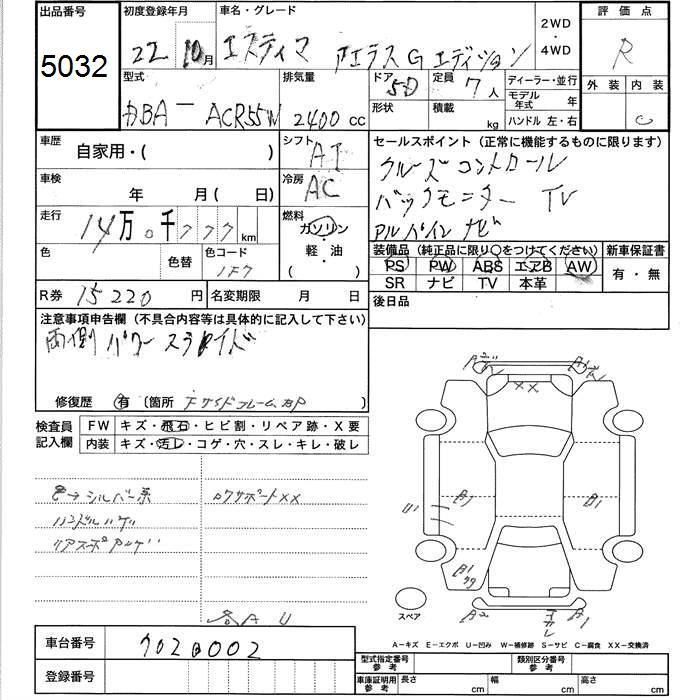 出品番号 初度登録年月 車名・グレード 2WD・4WD 評価点
5032 22 10月 エスティマ アエラス G エディション R
型式 排気量 ドア 5D 定員 7人 ディーラー・並行 外装 内装
DBA－ACR55W 2400cc 形状 積載 kg モデル年式 年 C
ハンドル 左・右
車歴 自家用・( ) シフト AT セールスポイント(正常に機能するものに限ります)
クルーズコントロール
車検 年 月(日) 冷房 AC バックモニター TV
アルパインナビ
走行 14万0千777km 燃料 ガソリン・軽・油・( )
装備品(純正品に限り○をつけてください) 新車保証書
色 色替 色コード 1F7 PS PW ABS エアB AW 有・無
SR ナビ TV 本革
R券 15220円 名変期限 月 日 後日品
注意事項申告欄(不具合内容等は具体的に記入して下さい)
両側パワースライド
修復歴 有 (箇所 )
検査員記入欄 FW キズ・飛石・ヒビ割・リペア跡・X要
内装 キズ・汚レ・コゲ・穴・スレ・キレ・破レ
→シルバー系 ロワサポートXX
ハンドルハゲ
XX
U1 B1
A2 A1
各AU
スペア
A－キズ E－エクボ U－凹み W－補修跡 S－サビ C－腐食 XX－交換済
車台番号 7020002
登録番号
型式指定番号 参考 類別区分番号 参考
車庫証明用 参考 長さ cm 幅 cm 高さ cm